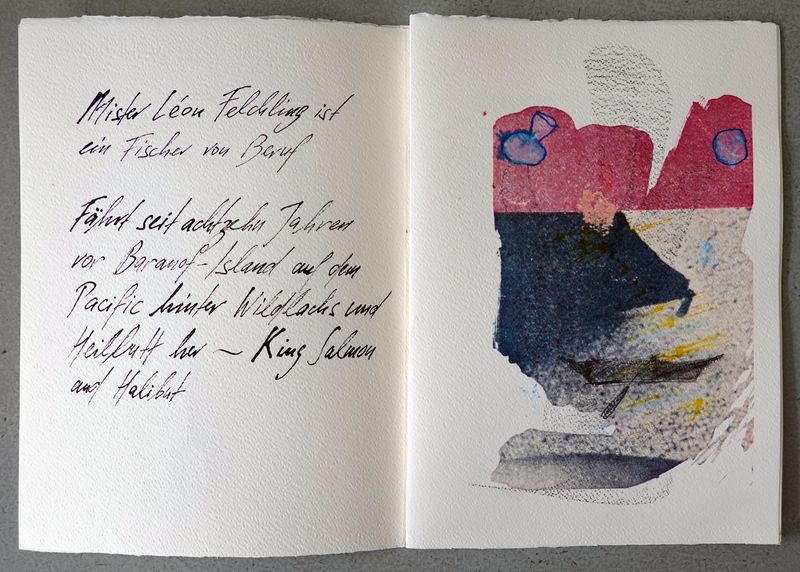 Mister Léon Felchling ist
ein Fischer von Beruf
Fährt seit achtzehn Jahren
vor Baranof-Island auf dem
Pacific hinter Wildlachs und
Heilbutt her – King Salmon
and Halibut